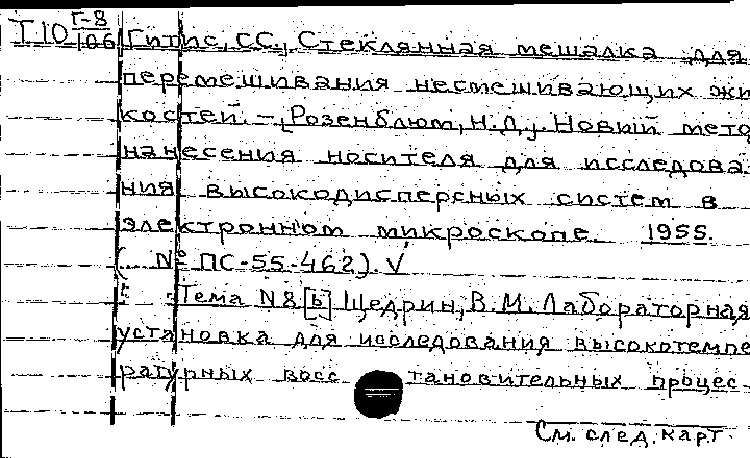 Т10 Г-8/106 Гитис, С.С., Стеклянная мешалка для
перемешивания несмешивающих жи
костей. –, Розенблюм, Н.Д., Новый мето
нанесения носителя для исследова
ния высокодисперсных систем в
электронном микроскопе. 1955.
( № ПС-55-462). V
Тема N8 [ь] Щедрин, В.М. Лабораторная
установка для исследования высокотемпе
ратурных восс тановительных процес-
См. след. карт.